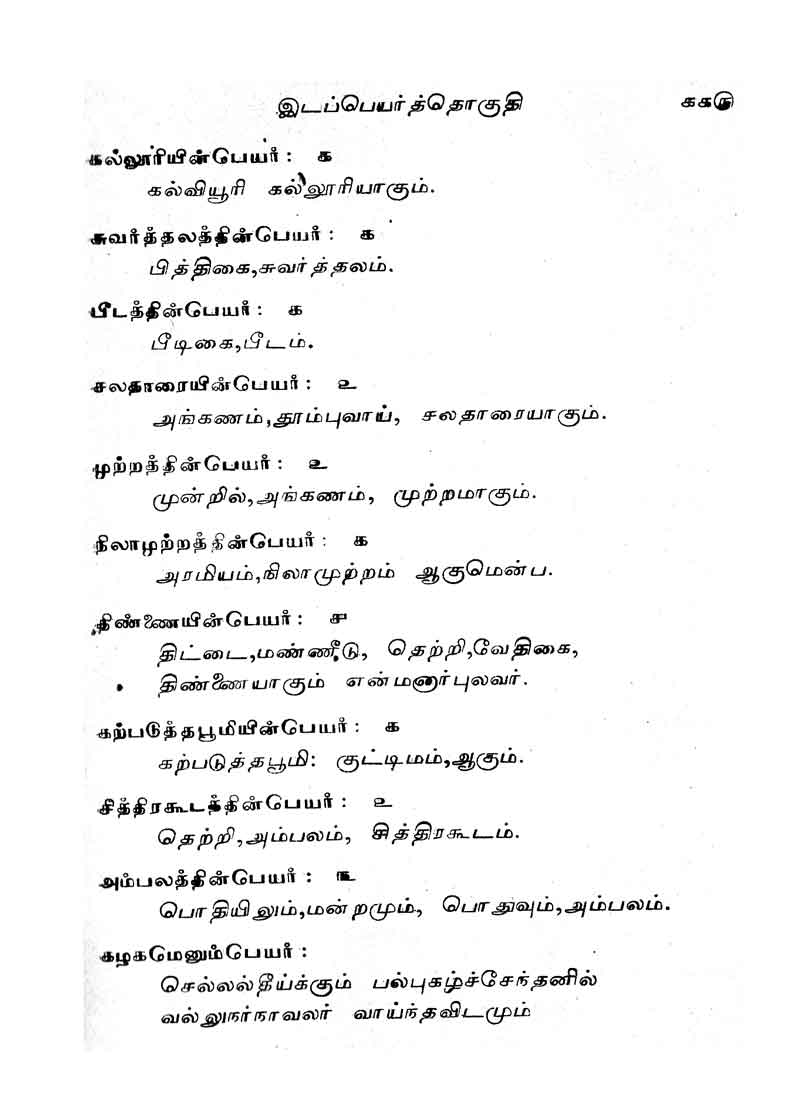 இடப்பெயர்த்தொகுதி ௧௧௫
கல்லூரியின்பெயர் : ௧
கல்வியூரி கல்லூரியாகும்.
சுவர்த்தலத்தின்பெயர் : ௧
பித்திகை,சுவர்த்தலம்.
பீடத்தின்பெயர் : ௧
பீடிகை,பீடம்.
சலதாரையின்பெயர் : ௨
அங்கணம்,தூம்புவாய், சலதாரையாகும்.
முற்றத்தின்பெயர் : ௨
முன்றில்,அங்கணம், முற்றமாகும்.
நிலாமுற்றத்தின்பெயர் : ௧
அரமியம்,நிலாமுற்றம் ஆகுமென்ப.
திண்ணையின்பெயர் : ௪
திட்டை,மண்ணீடு, தெற்றி,வேதிகை,
திண்ணையாகும் என்மனார்புலவர்.
கற்படுத்தபூமியின்பெயர் : ௧
கற்படுத்தபூமி: குட்டிமம்,ஆகும்.
சித்திரகூடத்தின்பெயர் : ௨
தெற்றி,அம்பலம், சித்திரகூடம்.
அம்பலத்தின்பெயர் : ௩
பொதியிலும்,மன்றமும், பொதுவும்,அம்பலம்.
கழகமெனும்பெயர் :
செல்லல்தீய்க்கும் பல்புகழ்ச்சேந்தனில்
வல்லுநர்நாவலர் வாய்ந்தவிடமும்